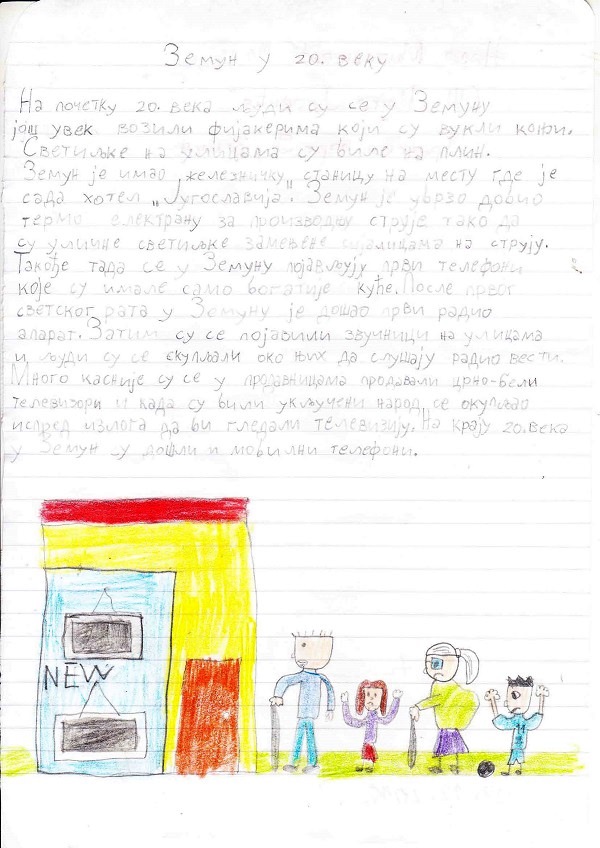 Земун у 20. веку
На почетку 20. века људи су се у Земуну
још увек возили фијакерима који су вукли коњи.
Светиљке на улицама су биле на плин.
Земун је имао железничку станицу на месту где је
сада хотел „Југославија". Земун је убрзо добио
термо електрану за производњу струје тако да
су уличне светиљке замењене сијалицама на струју.
Такође тада се у Земуну појављују први телефони
које су имале само богатије куће. После првог
светског рата у Земуну је дошао први радио
апарат. Затим су се појавили звучници на улицама
и људи су се скупљали око њих да слушају радио вести.
Много касније су се у продавницама продавали црно-бели
телевизори и када су били укључени народ се окупљао
испред излога да би гледали телевизију. На крају 20. века
у Земун су дошли и мобилни телефони.
NEW